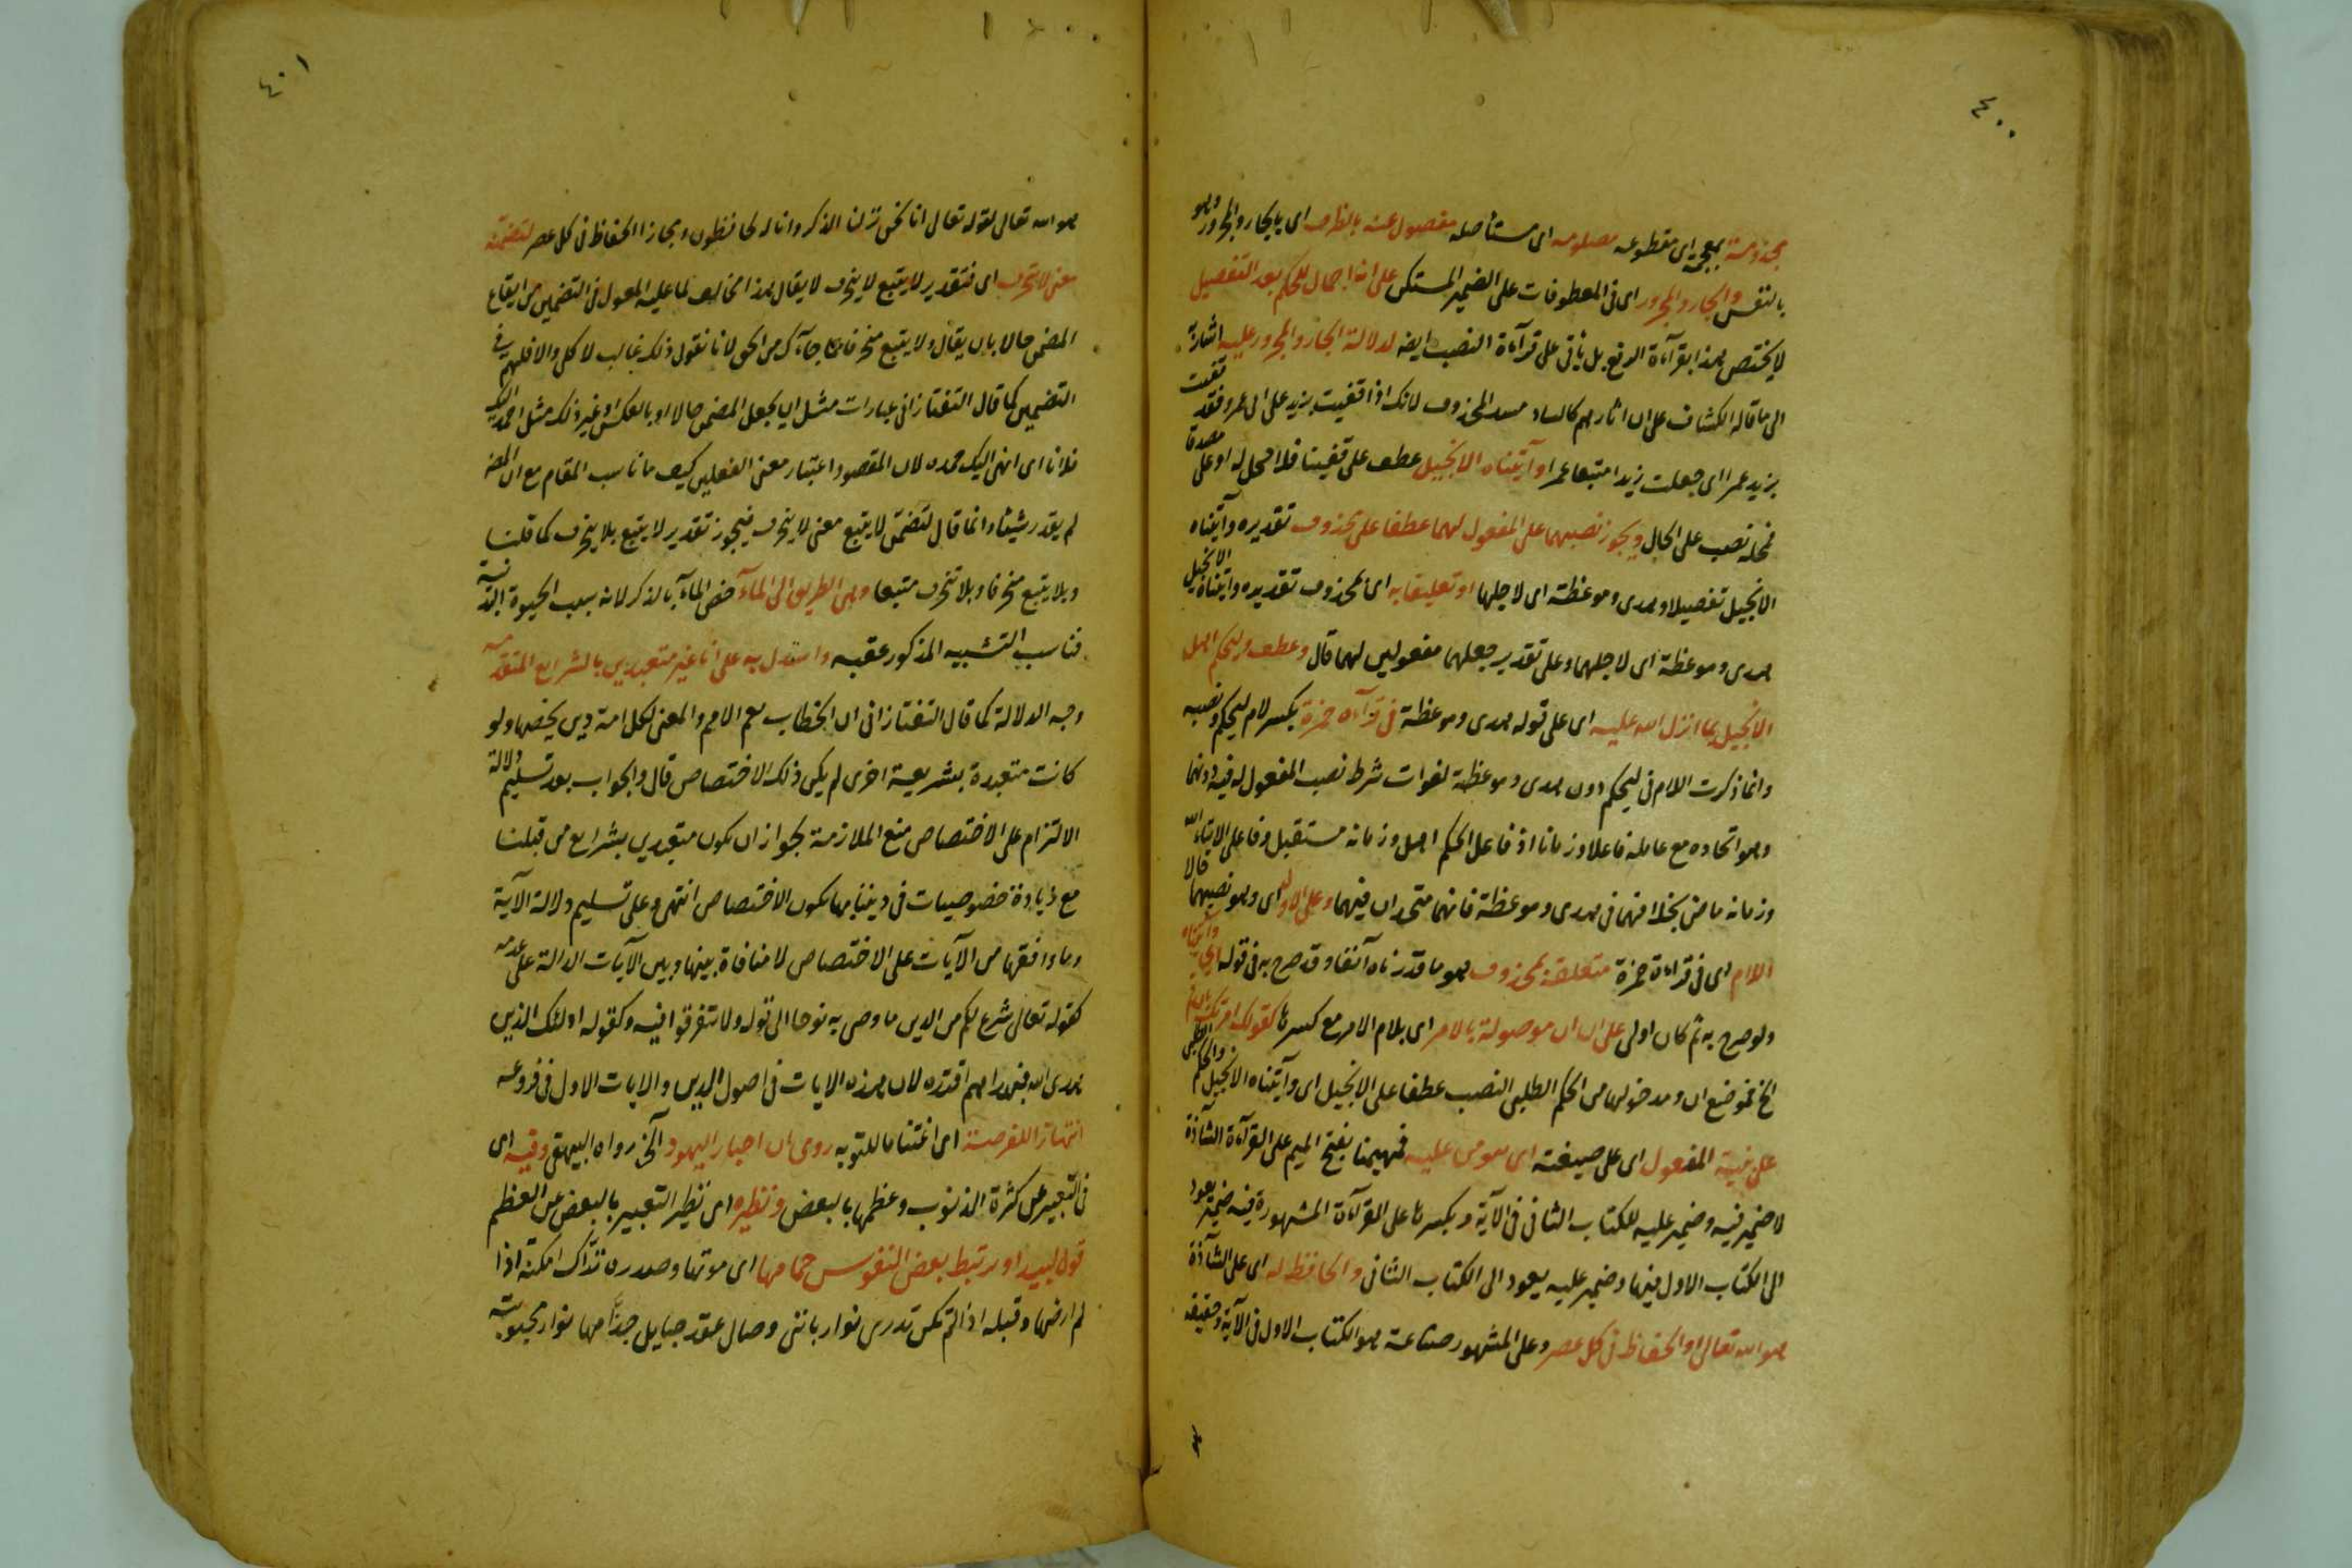 ٤٠٠
مجذومة بمعجمة اى مقطوعه مصلومه اى مستأصله مفصول عنه بالظرف اى بالجار والمجرور وهو
بالنفس والجار والمجرور اى فى المعطوفات على الضمير المستكن على انه اجمال للحكم بعد التفصيل
لا يختص بهذا بقرآءة الرفع بل يأتى على قرآءة النصب ايضا لدلالة الجار والمجرور عليه اشارة
الى ما قاله الكشاف على ان اثارهم كالساد مسد المحذوف لانك اذا قفيت بزيد على اثر عمرو فقد قفيت
بزيد عمرا اى جعلت زيدا متبعا عمرا وآتيناه الانجيل عطف على قفينا فلا محل له او على مصدقا
فمحله نصب على الحال ويجوز نصبهما على المفعول لهما عطفا على محذوف تقديره وآتيناه
الانجيل تفصيلا وهدى وموعظة اى لاجلها او تعليقا به اى بمحذوف تقديره وآتيناه الانجيل
هدى وموعظة اى لاجلهما وعلى تقدير جعلهما مفعولين لهما قال وعطف وليحكم اهل
الانجيل بما انزل الله عليه اى على قوله هدى وموعظة فى قرآءة حمزة بكسر لام ليحكم ونصبه
وانما ذكرت اللام فى ليحكم دون هدى وموعظة لفوات شرط نصب المفعول له فيه دونهما
وهو اتحاده مع عامله فاعلا وزمانا اذ فاعل الحكم اهل وزمانه مستقبل وفاعل الايتاء الله
وزمانه ماض بخلافهما فى هدى وموعظة فانهما متحدان فيهما وعلى الاول اى وهو نصبهما حالا
اللام اى فى قراءة حمزة متعلقة بمحذوف هو ما قدرناه آنفا وقد صرح به فى قوله اى وآتيناه
ولو صرح به ثم كان اولى على ان ان موصولة بالامر اى بلام الامر مع كسرها كقولك امرتك بان قم
الخ فموضع ان ومدخولها من الحكم الطلبى النصب عطفا على الانجيل اى وآتيناه الانجيل والحكم الطلبى
على بنية المفعول اى على صيغته اى هو من عليه فمهيمنا بفتح الميم على القرآءة الشآذة
لا ضمير فيه وضمير عليه للكتاب الثانى فى الآية وبكسرها على القرآءة المشهورة فيه ضمير يعود
الى الكتاب الاول فيها وضمير عليه يعود الى الكتاب الثانى والحافظ له اى على الشآذة
هو الله تعالى او الحفاظ فى كل عصر وعلى المشهور صناعة هو الكتاب الاول فى الآية وحقيقة
٤٠١
هو الله تعالى لقوله تعالى انا نحن نزلنا الذكر وانا له لحافظون ومجازا الحفاظ فى كل عصر لتضمنه
معنى لا تنحرف اى فتقدير لا يتبع لا ينحرف لا يقال هذا مخالف لما عليه المعول فى التضمين من ايقاع
المضمن حالا بان يقال ولا يتبع منحرفا عما جآءك من الحق لانا نقول ذلك غالب لا كلى والا فلهم فى
التضمين كما قال التفتازانى عبارات مثل ان يجعل المضمن حالا او بالعكس وغير ذلك مثل احمد اليك
فلانا اى انهى اليك حمده لان المقصود اعتبار معنى الفعلين كيف ما ناسب المقام مع ان المص
لم يقدر شيئا وانما قال لتضمن لا يتبع معنى لا ينحرف فيجوز تقدير لا يتبع بلا ينحرف كما قلنا
وبلا يتبع منحرفا وبلا تنحرف متبعا وهى الطريق الى المآء خص المآء بالذكر لانه سبب الحيوة الدنية
فناسب التشبيه المذكور عقبه واستدل به على انا غير متعبدين بالشرايع المتقدمه
وجه الدلالة كما قال التفتازانى ان الخطاب يعم الامم والمعنى لكل امة دين يخصها ولو
كانت متعبدة بشريعة اخرى لم يكن ذلك الاختصاص قال والجواب بعد تسليم دلالة
الالتزام على الاختصاص منع الملازمة لجواز ان نكون متعبدين بشرايع من قبلنا
مع زيادة خصوصيات فى ديننا بها يكون الاختصاص انتهى وعلى تسليم دلالة الآية
وما وافقها من الآيات على الاختصاص لا منافاة بينها وبين الآيات الدالة على عدمه
كقوله تعالى شرع لكم من الدين ما وصى به نوحا الى قوله ولا تتفرقوا فيه وكقوله اولئك الذين
هدى الله فبهداهم اقتده لان هذه الايات فى اصول الدين والايات الاول فى فروعه
انتهازا للفرصة اى اغتناما للتوبه روى ان احبار اليهود الخ رواه البيهقى وفيه اى
فى التعبير عن كثرة الذنوب وعظمها بالبعض ونظيره اى نظير التعبير بالبعض عن العظم
قول لبيد او يرتبط بعض النفوس حمامها اى موتها وصدره ترّاك امكنة اذا
لم ارضها وقبله اذ الم تكن تدرى نوار باننى وصال عقد حبايل جذّامها نوار محبوبته